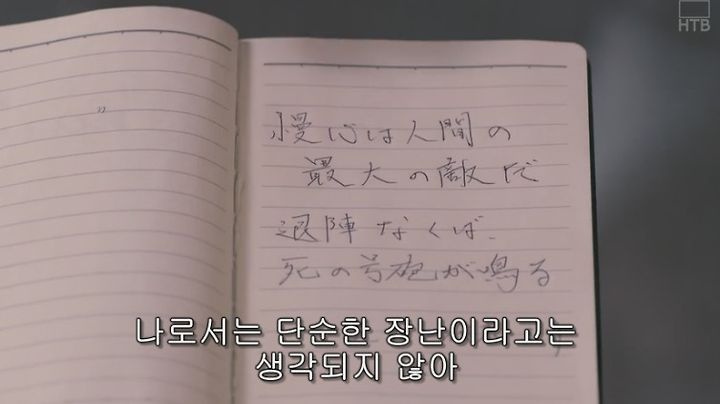 HTB
慢心は人間の
最大の敵だ
退陣なくば、
死の号砲が鳴る
나로서는 단순한 장난이라고는
생각되지 않아